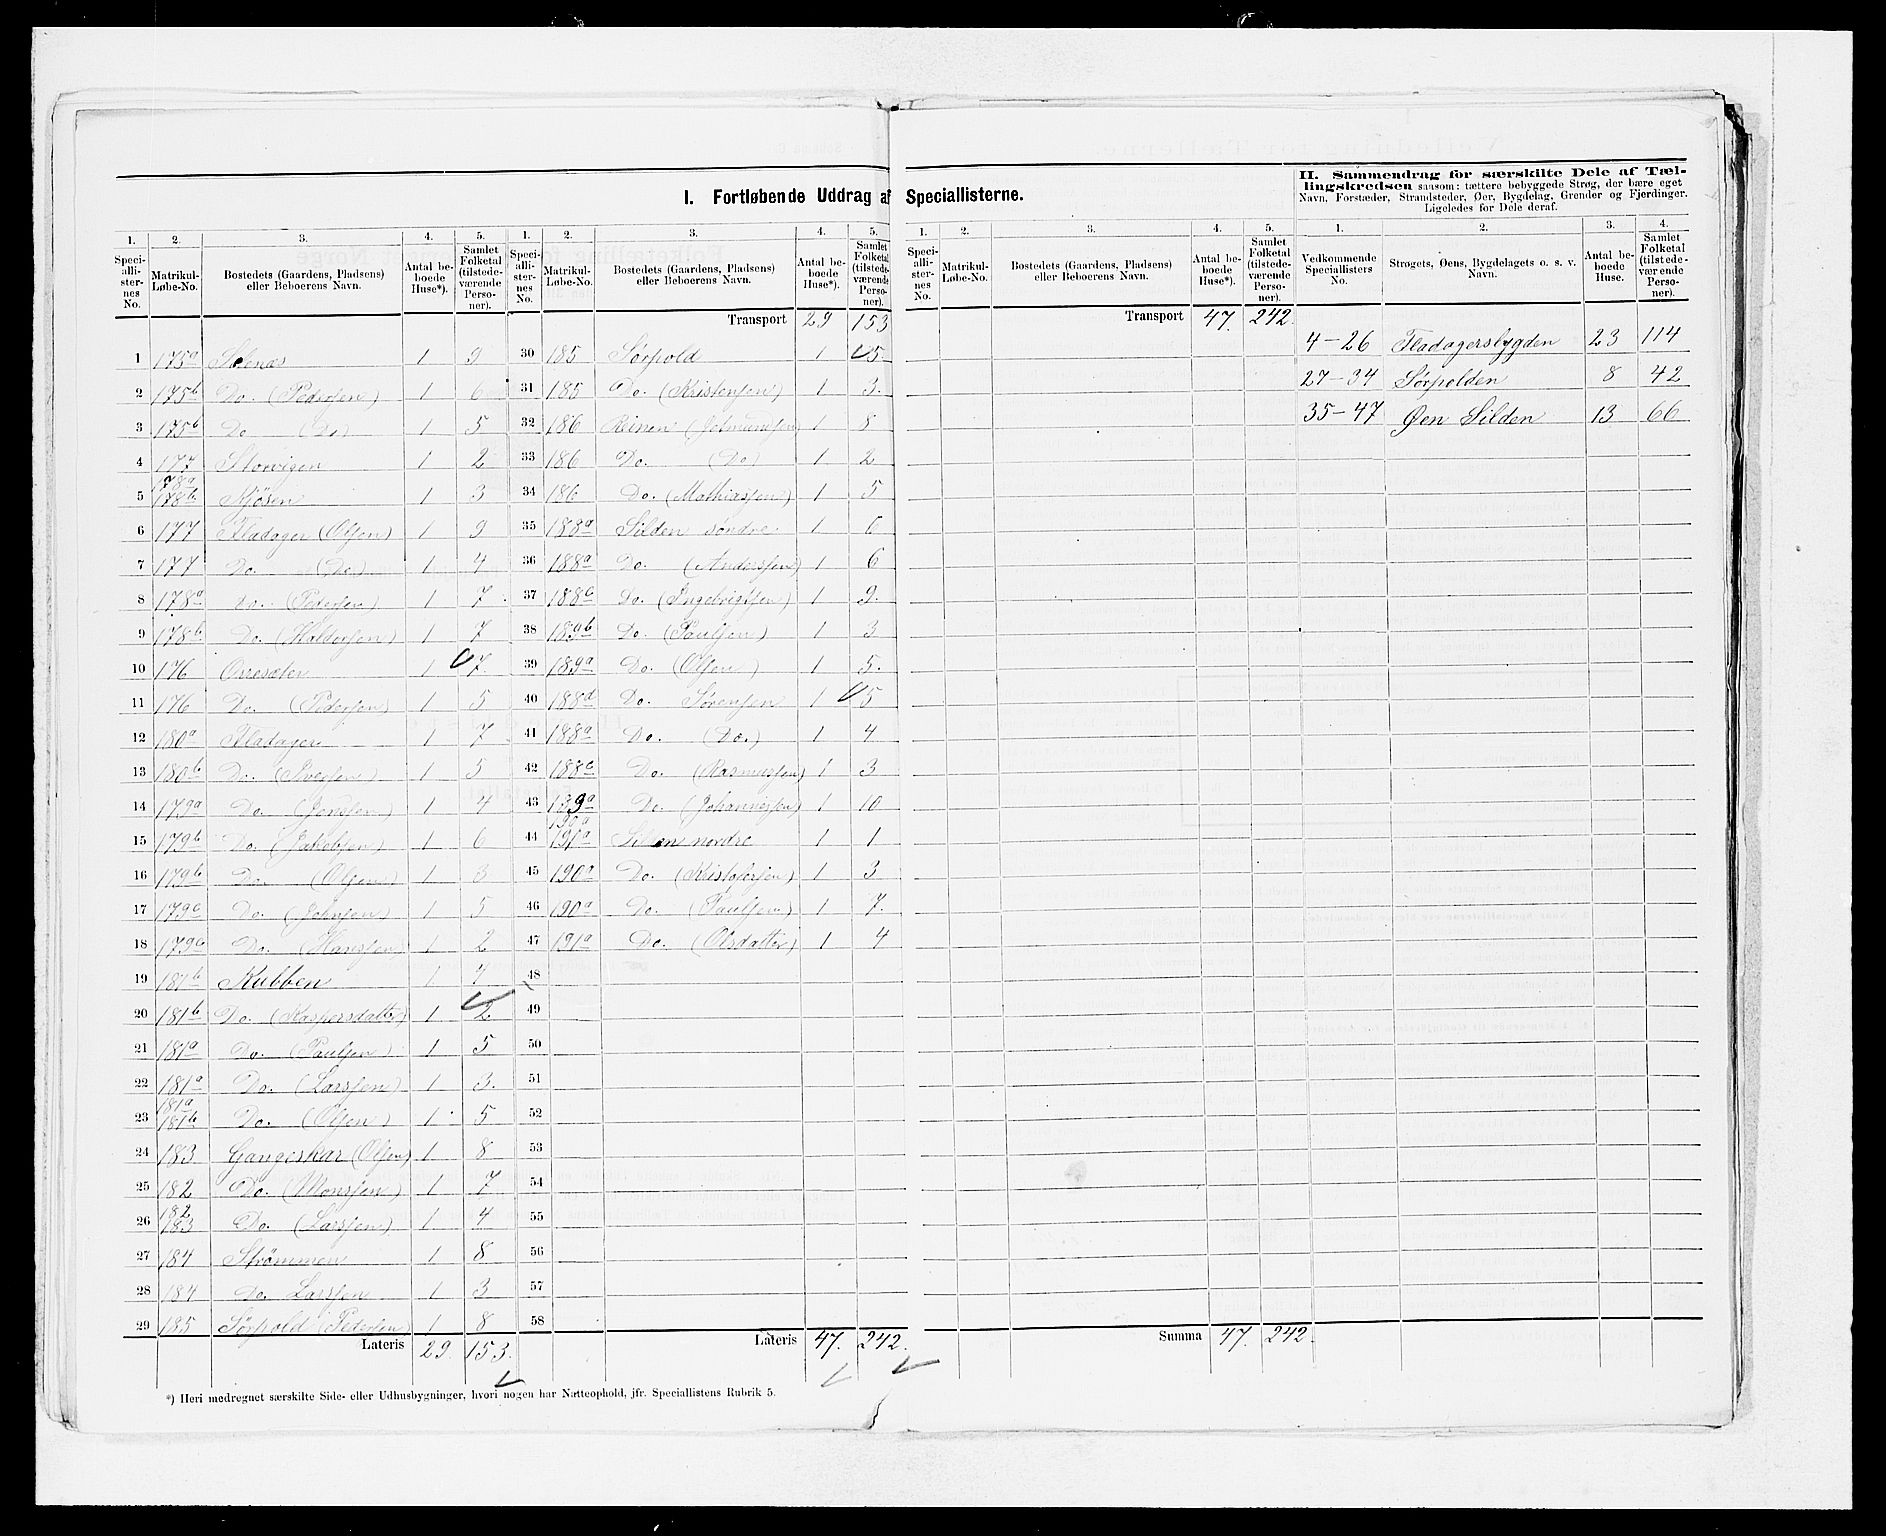 I. Fortløbende Uddrag af Speciallisterne.
II. Sammendrag for særskilte Dele af Tæl-
lingskredsen saasom: tættere bebyggede Strøg, der bære eget
Navn, Forstæder, Strandsteder, Øer, Bygdelag, Grender og Fjerdinger.
Ligeledes for Dele deraf.
1. 2. 3. 4. 5.
Speci-alli-ster-nes No. Matrikul-Løbe-No. Bostedets (Gaardens, Pladsens) eller Beboerens Navn. Antal be-boede Huse*). Samlet Folketal (tilstede-værende Perso-ner).
1 175a 1 9
2 175b Do. (Pedersen) 1 6
3 175b Do (Do) 1 5
4 177 Storvigen 1 2
5 178a 178b Kjösen 1 3
6 177 Fladager (Olsen) 1 9
7 177 Do. (Do.) 1 4
8 178a Do. (Pedersen) 1 7
9 178b Do. (Haldorsen) 1 7
10 176 Orresæter 1 7
11 176 Do. (Pedersen) 1 5
12 180a Fladager 1 7
13 180b Do. 1 5
14 179a Do. (Jensen) 1 4
15 179b Do. (Jakobsen) 1 6
16 179b Do. (Olsen) 1 3
17 179c Do. (Johnsen) 1 5
18 179c Do. (Hansen) 1 2
19 181b Kubben 1 7
20 181b Do. (Kaspersdatter) 1 2
21 181a Do. (Paulsen) 1 5
22 181a Do. (Larssen) 1 3.
23 181a 181b Do. (Olsen) 1 5
24 183 Gangeskar (Olsen) 1 8
25 182 Do. (Monssen) 1 7
26 182 183 Do. (Larssen) 1 4
27 184 Strömmen 1 8
28 184 Do. Larssen 1 3
29 185 Sørpold (Pedersen) 1 8
Lateris 29. 153.
1. 2. 3. 4. 5.
Speci-alli-ster-nes No. Matrikul-Løbe-No. Bostedets (Gaardens, Pladsens) eller Beboerens Navn. Antal be-boede Huse*). Samlet Folketal (tilstede-værende Perso-ner).
Transport 29 153
30 185 Sørpold 1 5
31 185 Do. (Kristensen) 1 3.
32 186 Reinen 1 8
33 186 Do. (Do) 1 2
34 186 Do. (Mathiassen) 1 5
35 188a Silden søndre 1 6
36 188a Do. (Anderssen) 1 6
37 188c Do. (Ingebrigtsen) 1 9.
38 189b Do. (Paulsen) 1 3
39 189a Do. (Olsen) 1 5.
40 188d Do. Sørensen 1 5
41 188a Do. (Do.) 1 4
42 188c Do. (Rasmussen) 1 3
43 189a Do. (Johannessen) 1 10
44 190a 191a Silden nordre 1 1
45 190a Do. (Kristofersen) 1 3
46 190a Do. (Paulsen) 1 7.
47 191a Do. (Olsdatter) 1 4
48
49
50
51
52
53
54
55
56
57
58
Lateris 47. 242.
1. 2. 3. 4. 5.
Speci-alli-ster-nes No. Matrikul-Løbe-No. Bostedets (Gaardens, Pladsens) eller Beboerens Navn. Antal be-boede Huse*). Samlet Folketal (tilstede-værende Perso-ner).
Transport 47. 242.
Summa 47. 242.
1. 2. 3. 4.
Vedkommende Speciallisters No. Strøgets, Øens, Bygdelagets o. s. v. Navn. Antal be-boede Huse. Samlet Folketal (tilstede-værende Perso-ner).
4-26 Fladagersbygden 23 114
27-34 Sørpolden 8 42
35-47 Øen Silden 13 66
*) Heri medregnet særskilte Side- eller Udhusbygninger, hvori nogen har Natteophold, jfr. Speciallistens Rubrik 5.